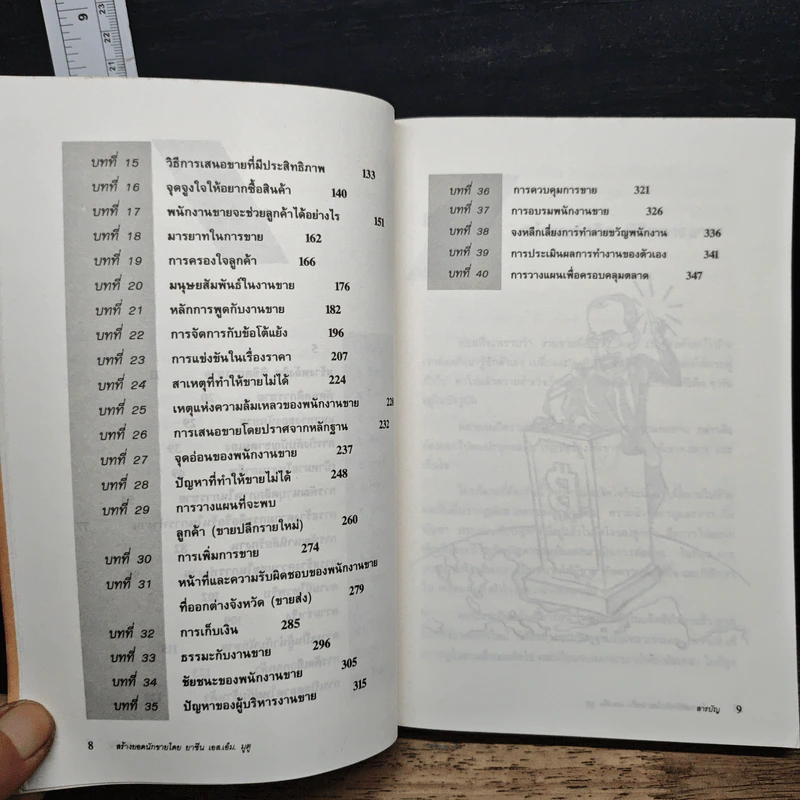 9
23
22
21
บทที่ 15 วิธีการเสนอขายที่มีประสิทธิภาพ 133
บทที่ 16 จุดจูงใจให้อยากซื้อสินค้า 140
บทที่ 17 พนักงานขายจะช่วยลูกค้าได้อย่างไร 151
บทที่ 18 มารยาทในการขาย 162
บทที่ 19 การครองใจลูกค้า 166
บทที่ 20 มนุษยสัมพันธ์ในงานขาย 176
บทที่ 21 หลักการพูดกับงานขาย 182
บทที่ 22 การจัดการกับข้อโต้แย้ง 196
บทที่ 23 การแข่งขันในเรื่องราคา 207
บทที่ 24 สาเหตุที่ทำให้ขายไม่ได้ 224
บทที่ 25 เหตุแห่งความล้มเหลวของพนักงานขาย 228
บทที่ 26 การเสนอขายโดยปราศจากหลักฐาน 232
บทที่ 27 จุดอ่อนของพนักงานขาย 237
บทที่ 28 ปัญหาที่ทำให้ขายไม่ได้ 248
บทที่ 29 การวางแผนที่จะพบ
ลูกค้า (ขายปลีกรายใหม่) 260
บทที่ 30 การเพิ่มการขาย 274
บทที่ 31 หน้าที่และความรับผิดชอบของพนักงานขาย
ที่ออกต่างจังหวัด (ขายส่ง) 279
บทที่ 32 การเก็บเงิน 285
บทที่ 33 ธรรมะกับงานขาย 296
บทที่ 34 ชัยชนะของพนักงานขาย 305
บทที่ 35 ปัญหาของผู้บริหารงานขาย 315
8 สร้างยอดนักขายโดย ยาซีน เอส.เอ็ม. มูตู
บทที่ 36 การควบคุมการขาย 321
บทที่ 37 การอบรมพนักงานขาย 326
บทที่ 38 จงหลีกเลี่ยงการทำลายขวัญพนักงาน 336
บทที่ 39 การประเมินผลการทำงานของตัวเอง 341
บทที่ 40 การวางแผนเพื่อครอบคลุมตลาด 347
สารบัญ 9